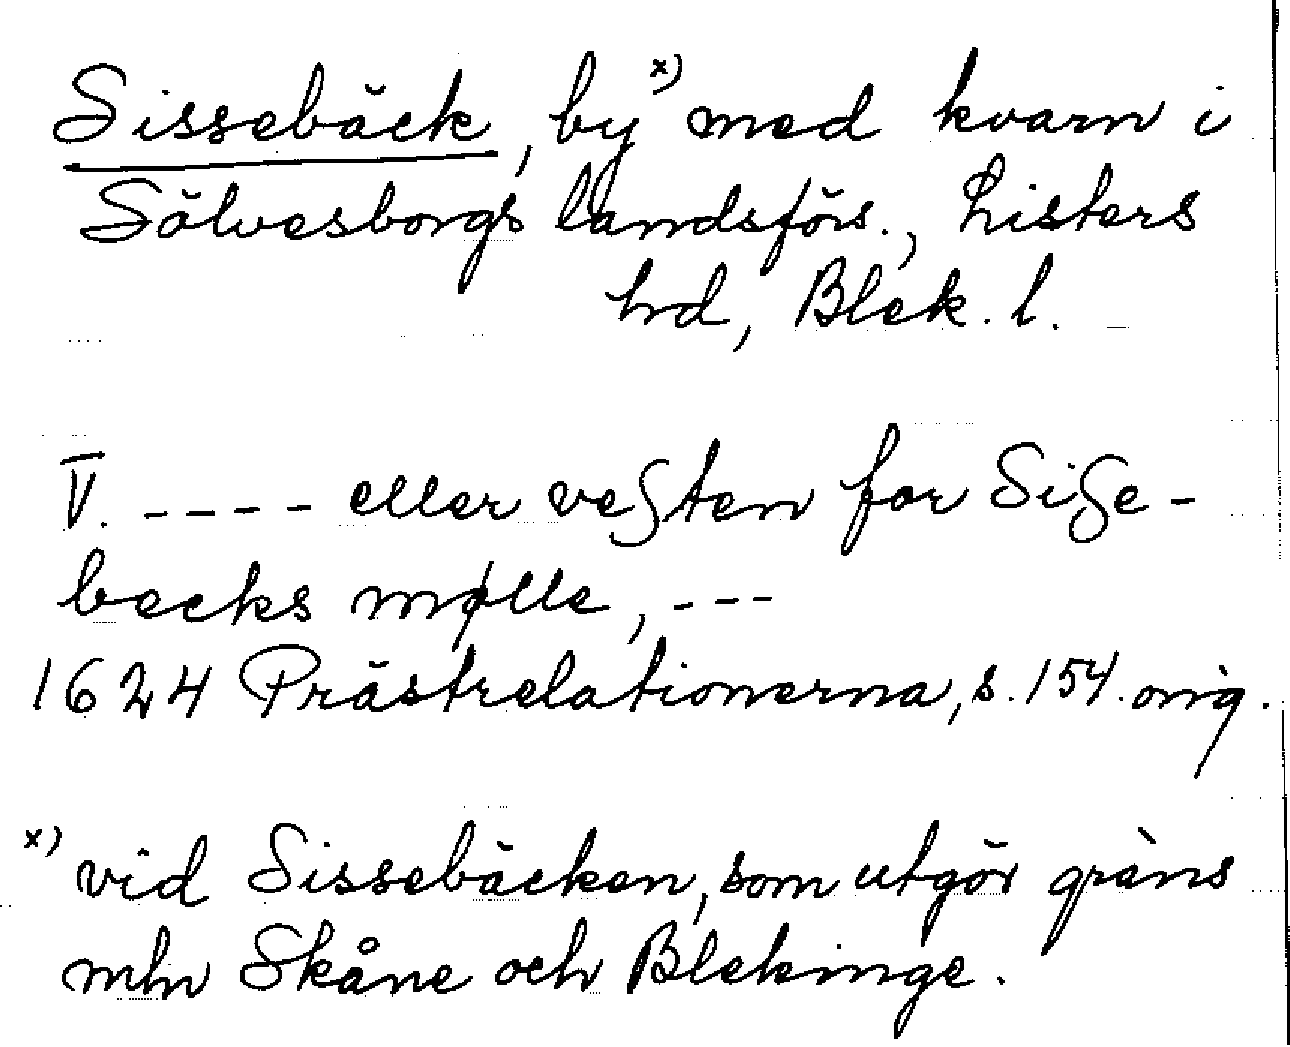 Sissebäck, by x) med kvarn i
Sölvesborgs landsförs., Listers
hrd, Blek. l.
V. ---- eller vesten for Siße-
becks mølle, ---
1624 Prästrelationerna, s. 154. orig.
x) vid Sissebäcken, som utgör gräns
mln Skåne och Blekinge.